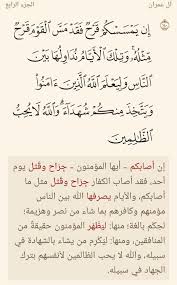 آل عمران
الجزء الرابع
إِن يَمْسَسْكُمْ قَرْحٌ فَقَدْ مَسَّ الْقَوْمَ قَرْحٌ
مِّثْلُهُ وَتِلْكَ الْأَيَّامُ نُدَاوِلُهَا بَيْنَ
النَّاسِ وَلِيَعْلَمَ اللَّهُ الَّذِينَ ءَامَنُوا
وَيَتَّخِذَ مِنكُمْ شُهَدَاءَ وَاللَّهُ لَا يُحِبُّ
الظَّالِمِينَ
إن أصابكم - أيها المؤمنون - جِراح وقَتْل يوم
أحد، فقد أصاب الكفار جِراح وقَتْل مثل ما
أصابكم، والأيام يصرفها الله بين الناس
مؤمنهم وكافرهم بما شاء من نصر وهزيمة؛
لحِكَم بالغة؛ منها: ليظهر المؤمنون حقيقةً من
المنافقين، ومنها: ليُكرِم من يشاء بالشهادة في
سبيله، والله لا يحب الظالمين لأنفسهم بترك
الجهاد في سبيله.